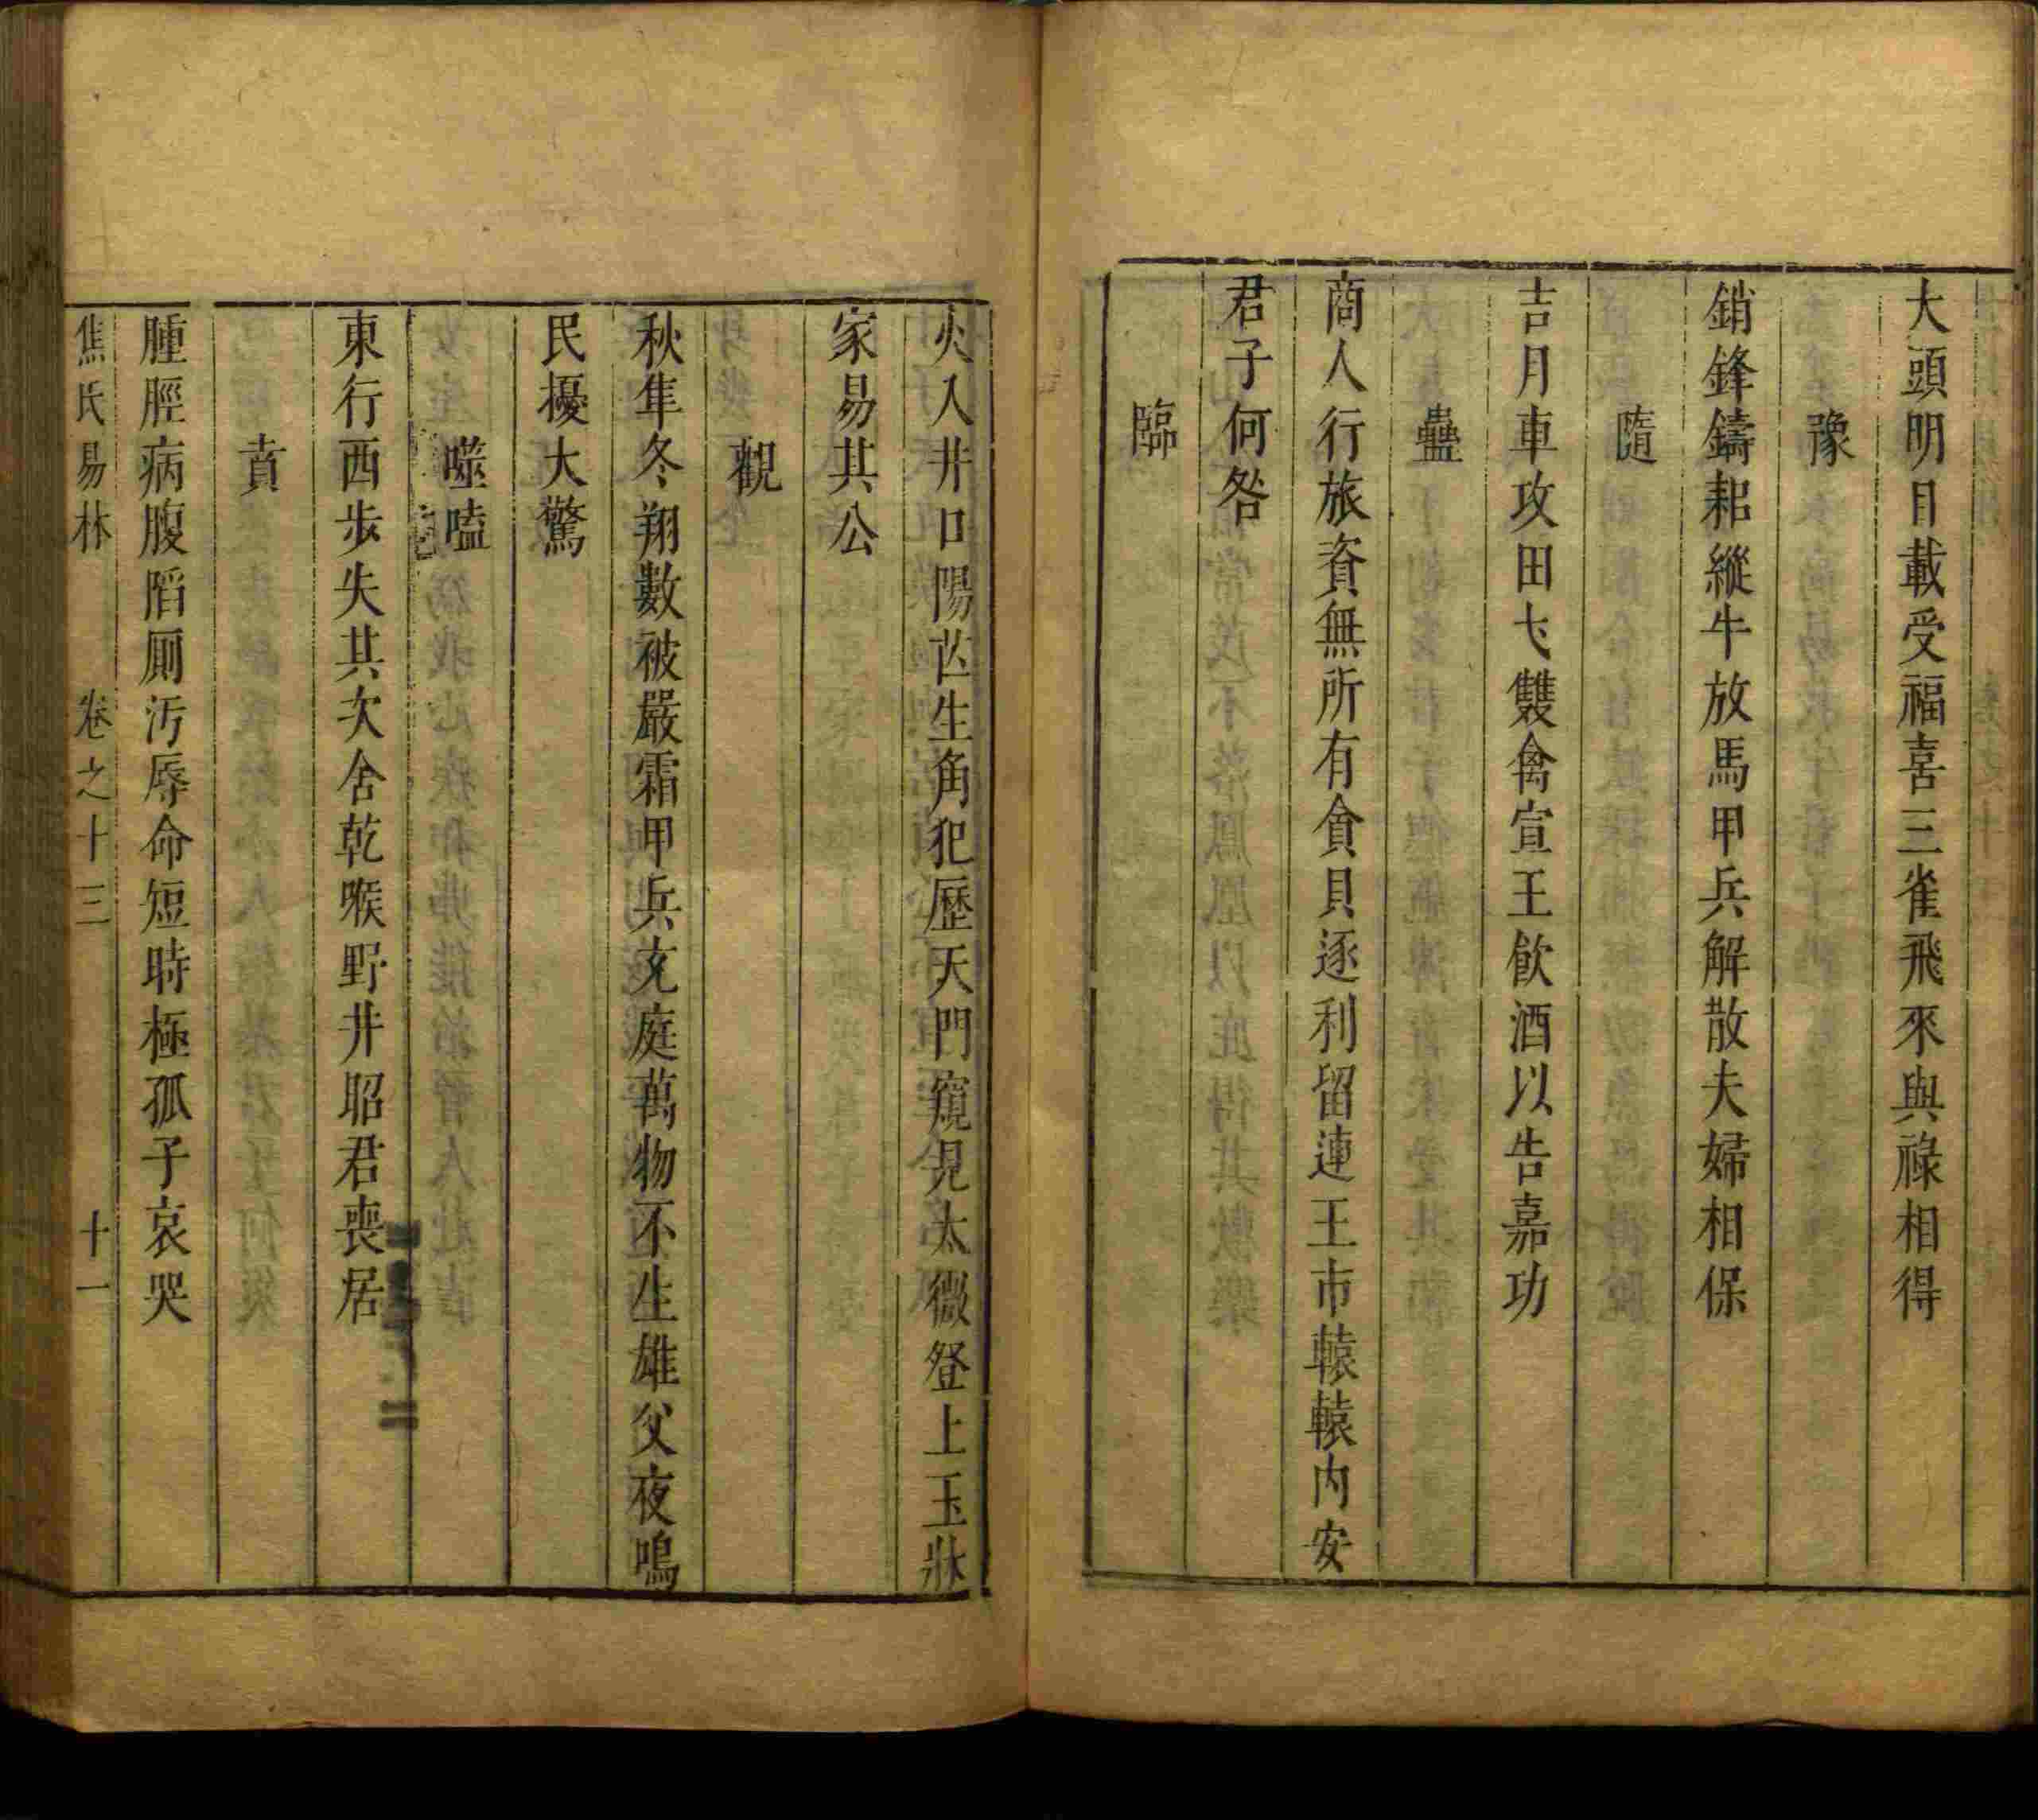 大頭明目載受福喜三雀飛來與祿相得
豫
銷鋒鑄耜縱牛放馬甲兵解散夫婦相保
隨
吉月車攻田弋雙禽宣王飲酒以告嘉功
蠱
商人行旅資無所有貪貝逐利留連王市轅轅内安
君子何咎
臨
火入井口陽芒生角犯歷天門窺見太微登上玉牀
家易其公
觀
秋隼冬翔數被嚴霜甲兵充庭萬物不生雄父夜鳴
民擾大驚
噬嗑
東行西步失其次舍乾喉野井昭君喪居
賁
腫脛病腹䧟厠汚辱命短時極孤子哀哭
焦氏易林 卷之十三 十一